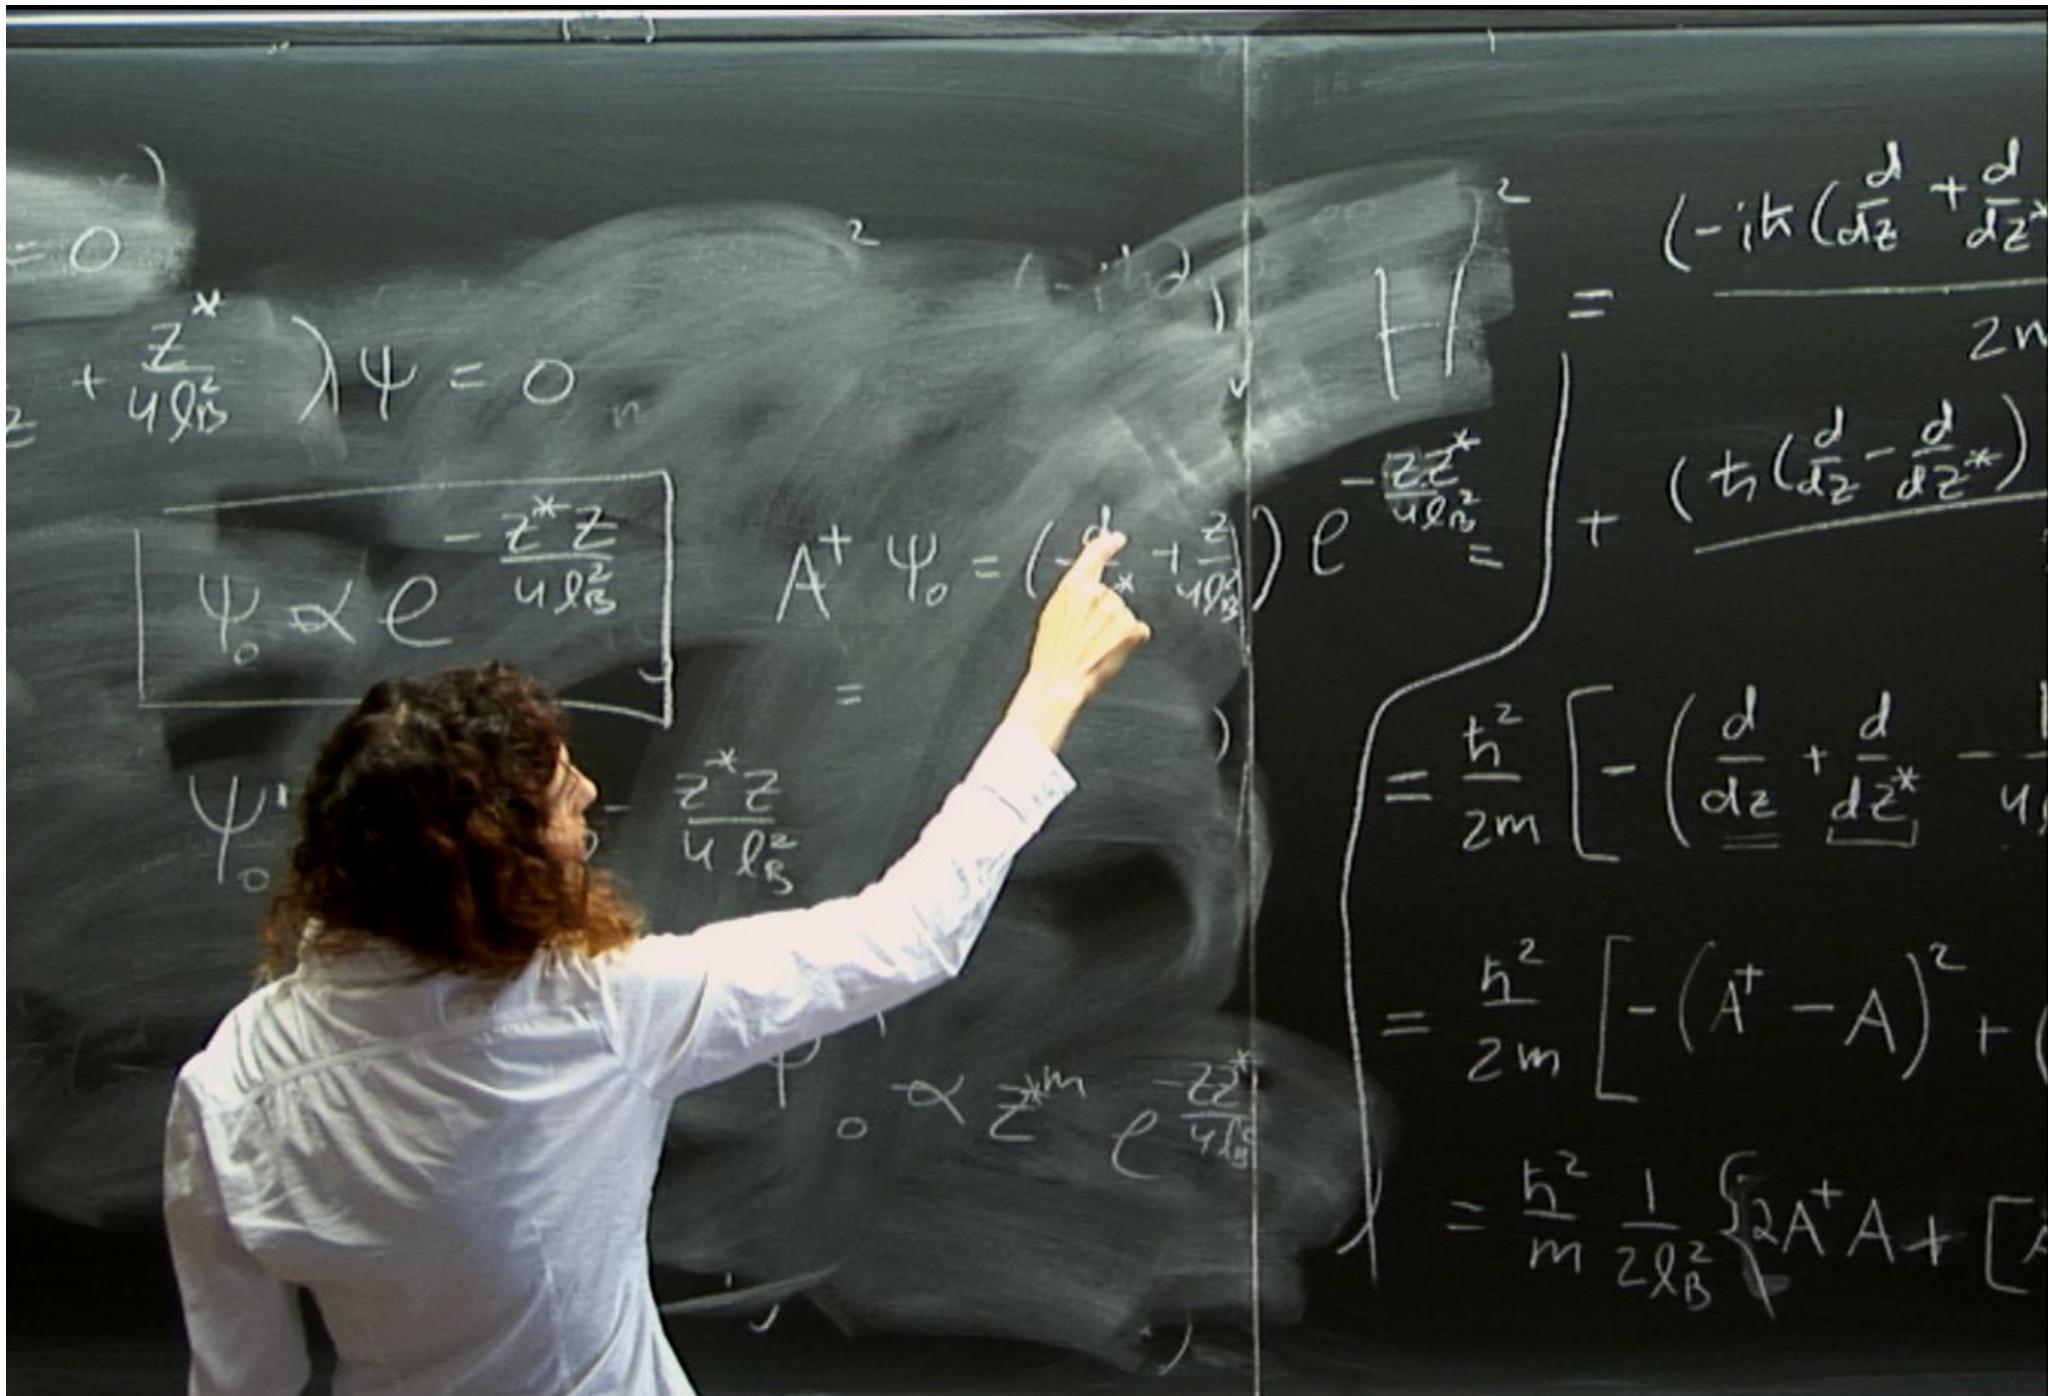 = 0
+ z*/4ℓ_B²) ψ = 0
ψ₀ ∝ e^(-z*z/4ℓ_B²)
A† ψ₀ = ( + z/4ℓ_B²) e^(-zz*/4ℓ_B²) =
=
ψ₀ - z*z/4ℓ_B²
₀ ∝ z*^m e^(-zz*/4ℓ_B²)
H = (-iħ(d/dz + d/dz*
+ (ħ(d/dz - d/dz*)
= ħ²/2m [-(d/dz + d/dz* -
= ħ²/2m [-(A† - A)² + (
= ħ²/m 1/2ℓ_B² {2A†A + [